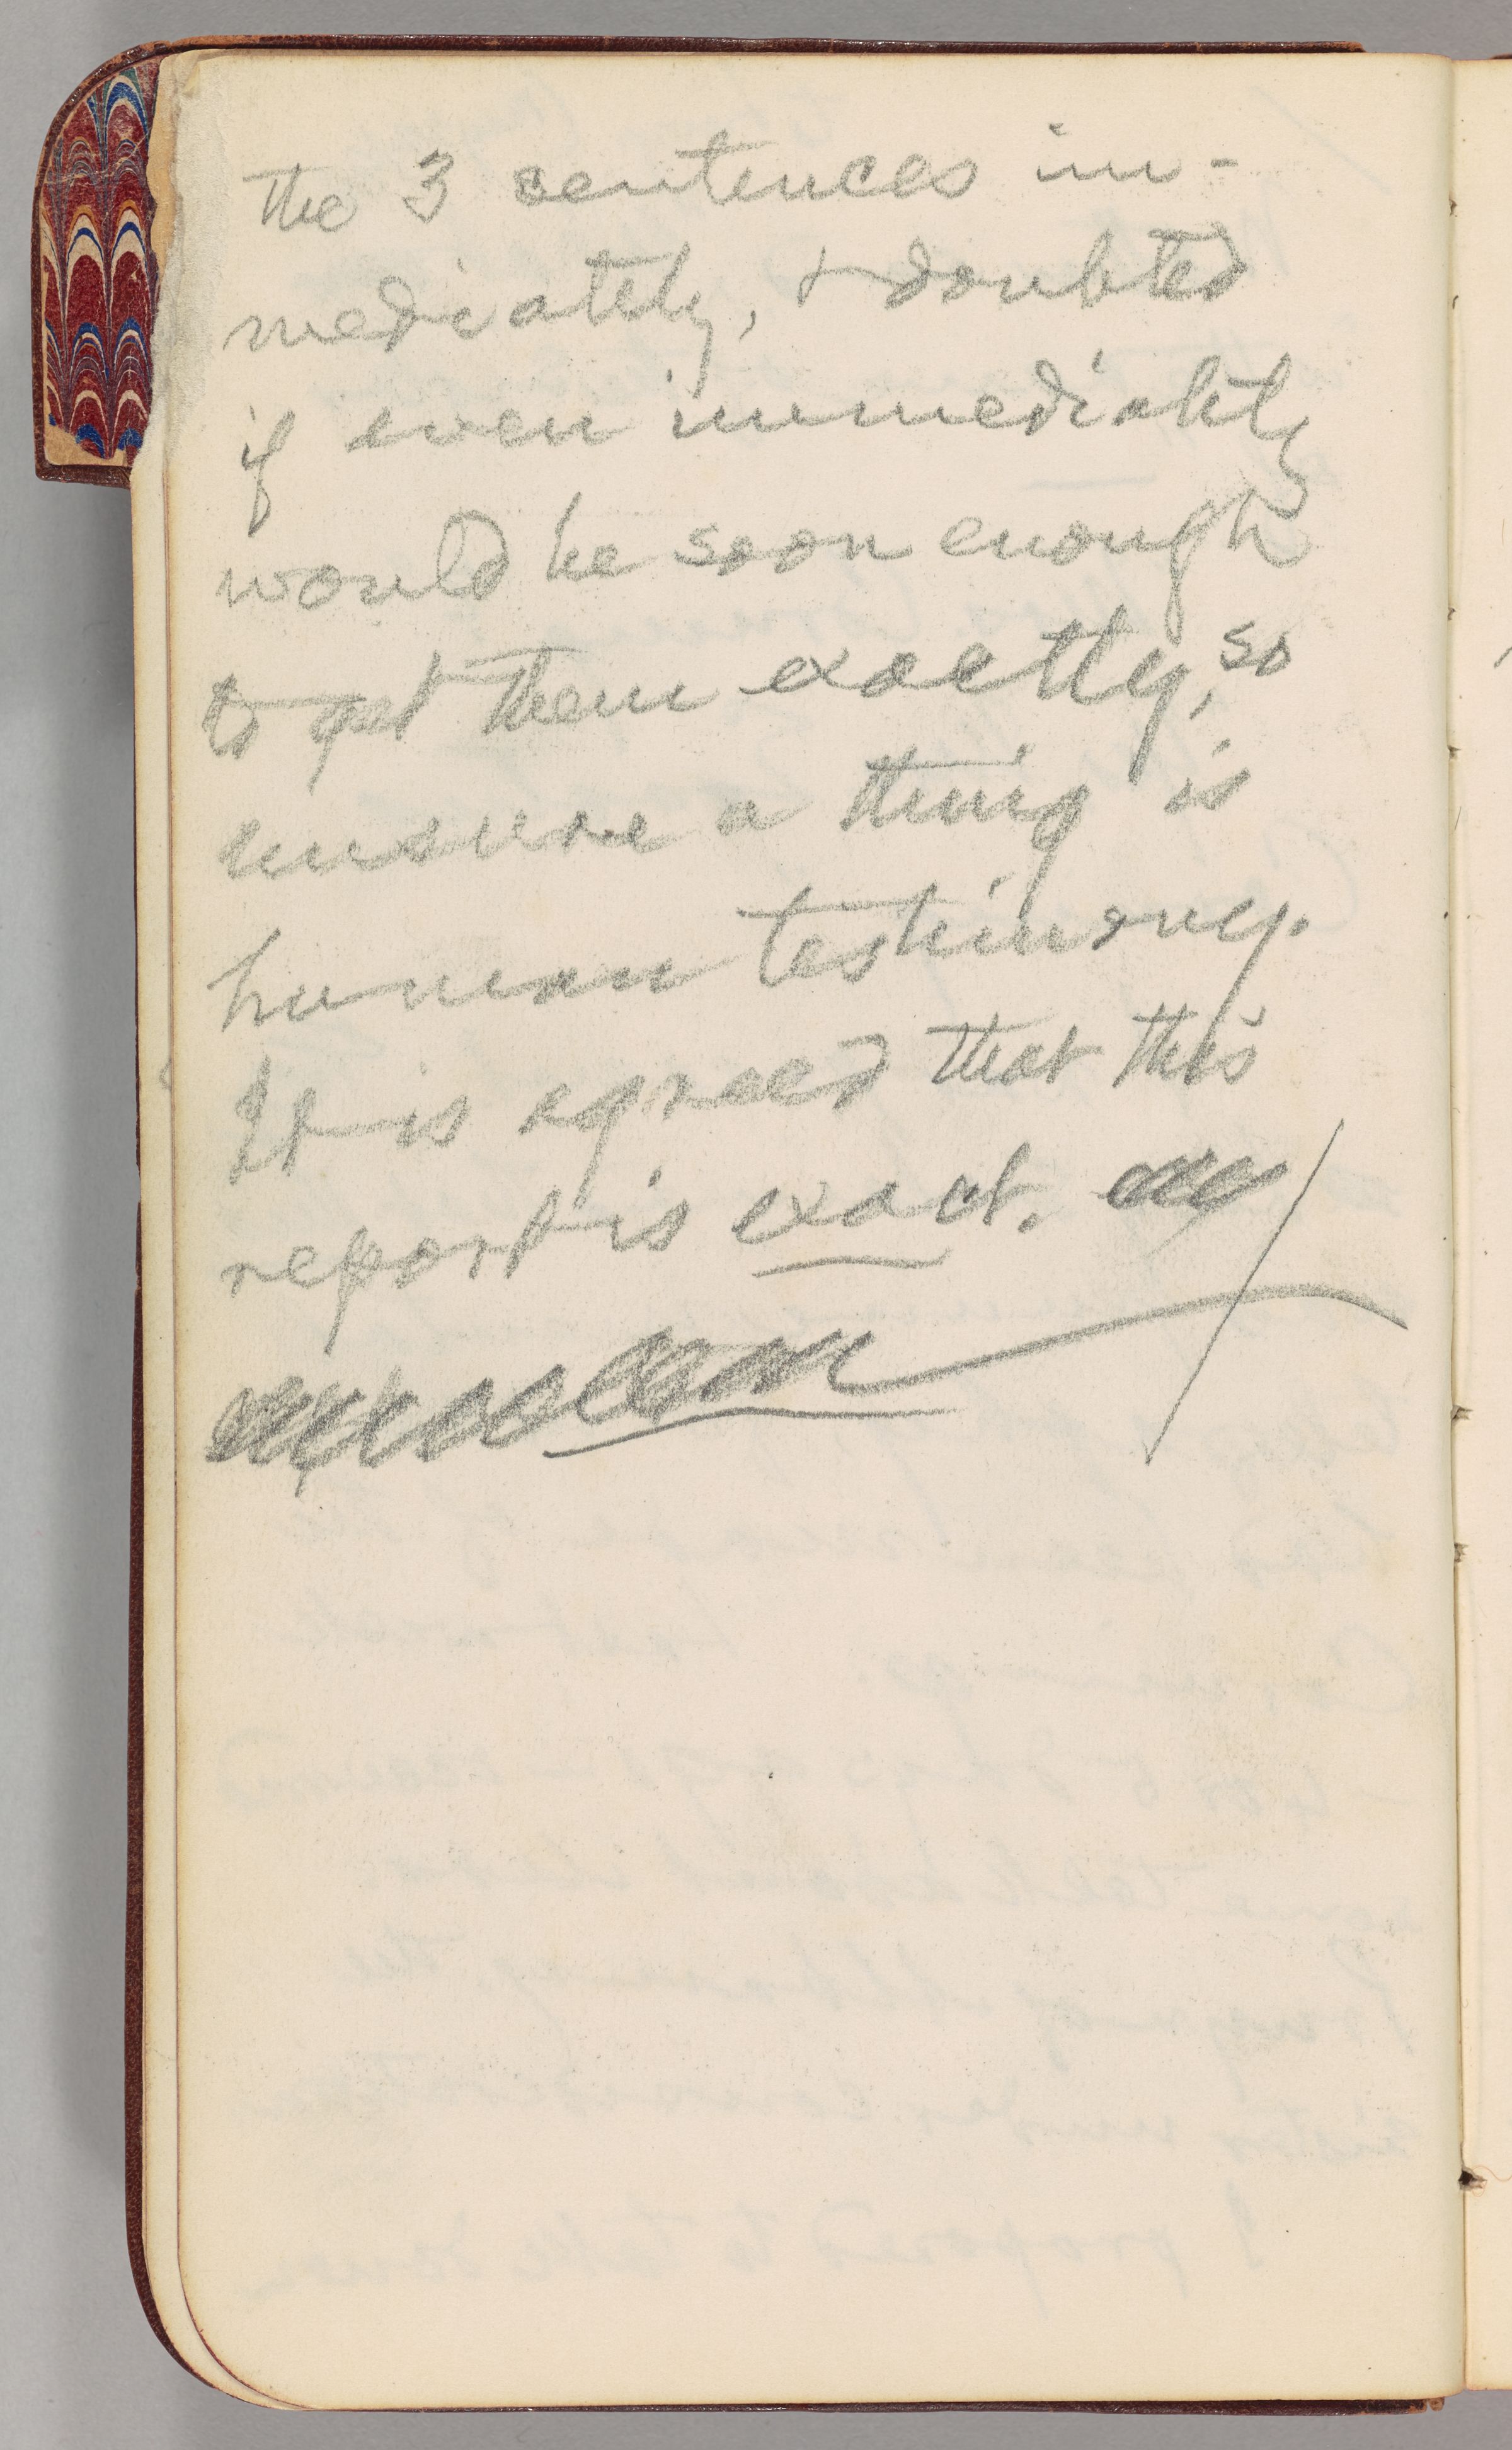 the 3 sentences im-
mediately, & doubted
if even immediately
would be soon enough
to get them exactly, so
unsure a thing is
human testimony.
It is agreed that this
report is exact.